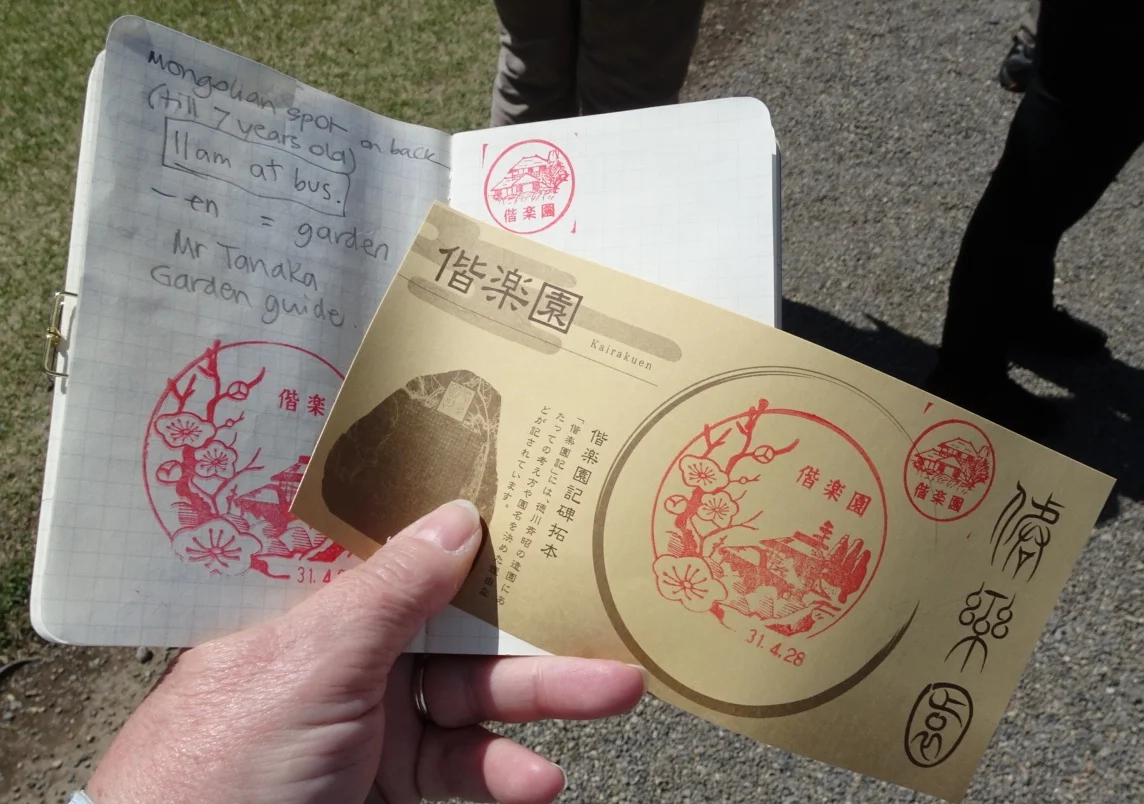 Mongolian spot
(till 7 years old) on back
11am at bus.
- en = garden
Mr Tanaka
Garden guide.
偕楽
31.4.2
偕楽園
偕楽園
Kairakuen
偕楽園記碑拓本
「偕楽園記」には、徳川斉昭の造園にあ
たっての考え方や園名を決めた理由な
どが記されています。
偕楽園
31.4.28
偕楽園
偕樂園